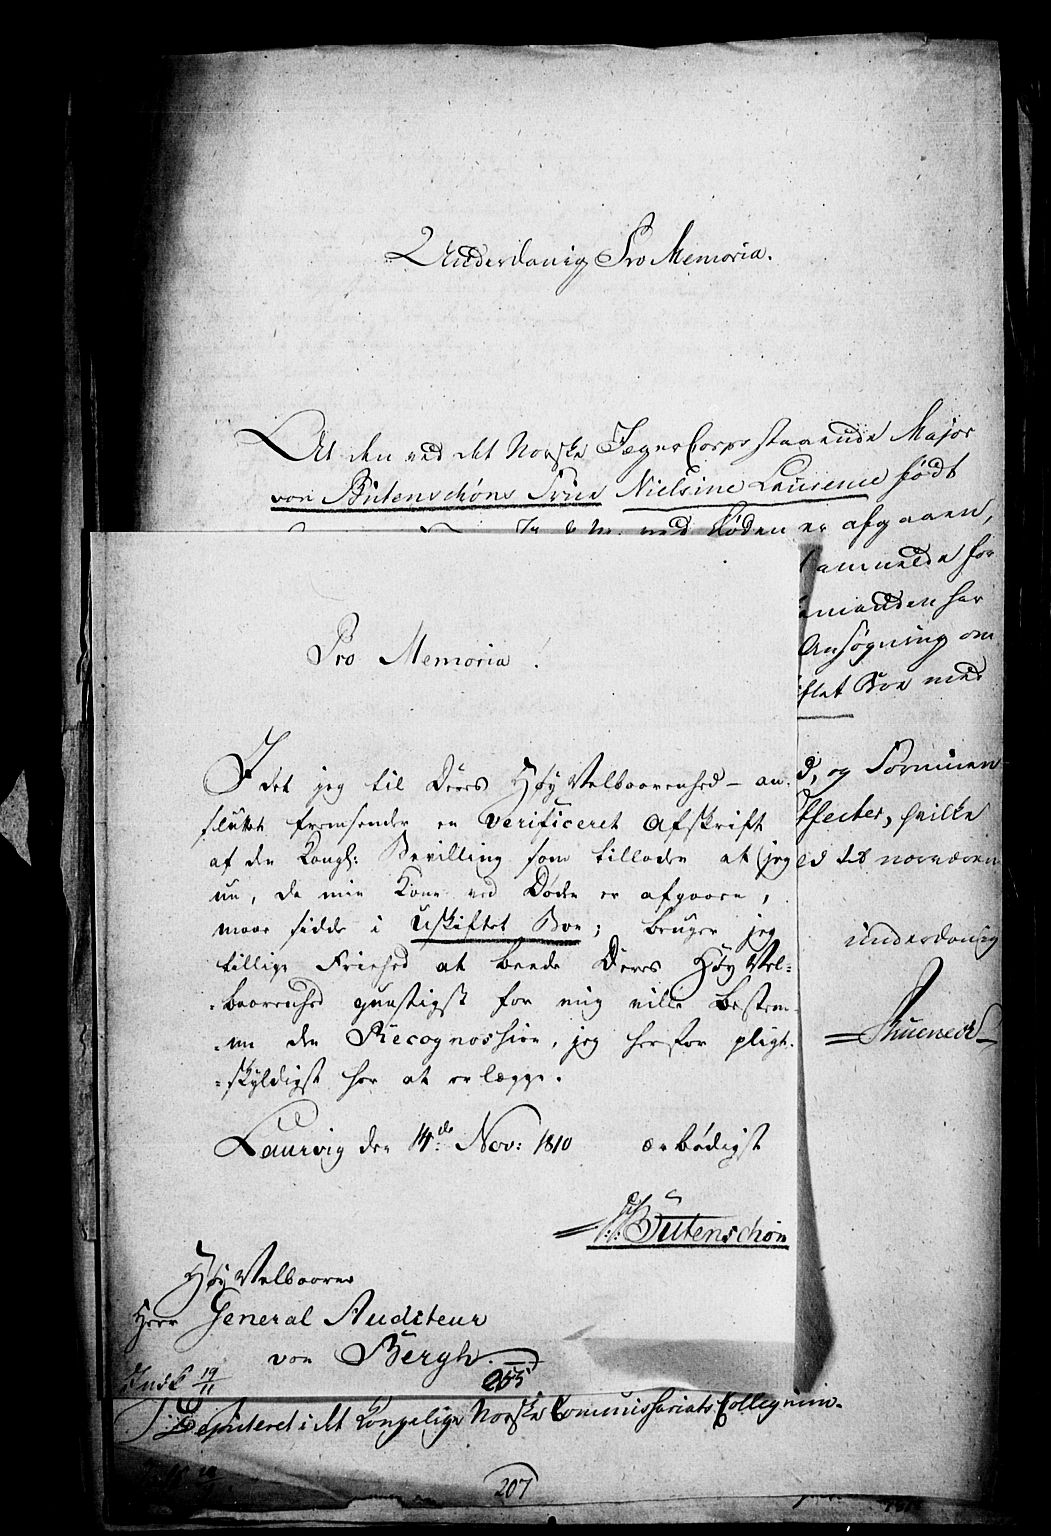 Underdanig Pro Memoria.
At den ved det Norske JægerCorps staaende Major
von Bütenschøns Frue Nielsine Laurence født
ved Døden er afgaaen,
anmelde for
manden har
Ansøgning om
iftet Boe med
d, og Formuen
Effecter, hvilke
ed det nærværen
underdanig
Pro Memoria!
I det jeg til Deres HøyVelbaarenhed – an-
sluttet fremsender en verificeret Afskrift
af den Kongl: Bevilling som tillader at jeg
nu, da min Kone ved Døden er afgaaen,
maae sidde i Uskiftet Boe; bruger jeg
tillige Friehed at beede Deres HøyVel-
baarenhed gunstigst for mig ville bestem-
me den Recognoshion, jeg herfor pligt-
skyldigst har at erlægge.
Laurvig den 14de Nov: 1810 ærbødigst
Bütenschøn
HøyVelbaarne
Herr General Auditeur
von Bergh
Indk 19/11
255
Deputeret i det Kongelige Norske Commissariats Collegium.
207